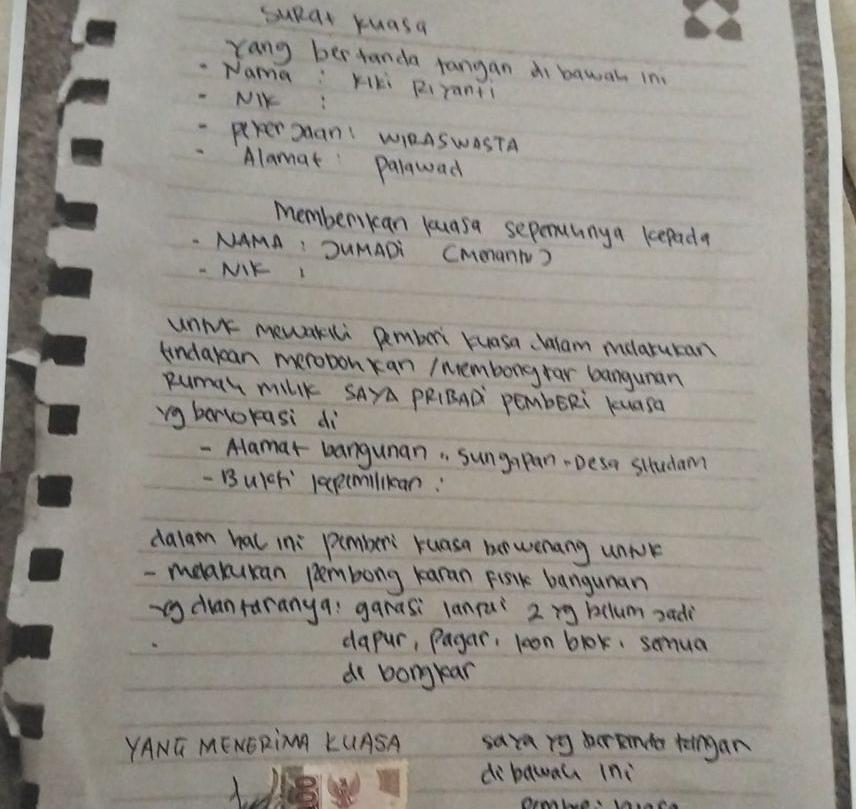 Surat Kuasa
Yang bertanda tangan di bawah ini
- Nama : Kiki Riyanti
- NIK :
- Pekerjaan : WIRASWASTA
- Alamat : Palawad
Memberikan kuasa sepenuhnya kepada
- NAMA : JUMADI (Menantu)
- NIK :
untuk mewakili Pemberi Kuasa dalam melakukan
tindakan merobohkan / Membongkar bangunan
Rumah milik SAYA PRIBADI PEMBERI Kuasa
yg berlokasi di
- Alamat bangunan : Sungapan - Desa
- Bukti kepemilikan :
dalam hal ini pemberi kuasa berwenang untuk
- melakukan pembongkaran Fisik bangunan
yg diantaranya : garasi lantai 2 yg belum jadi
dapur, Pagar, kon blok, semua
di bongkar
YANG MENERIMA KUASA
saya yg bertanda tangan
dibawah ini
Pemberi kuasa